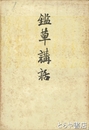 鑑草講話